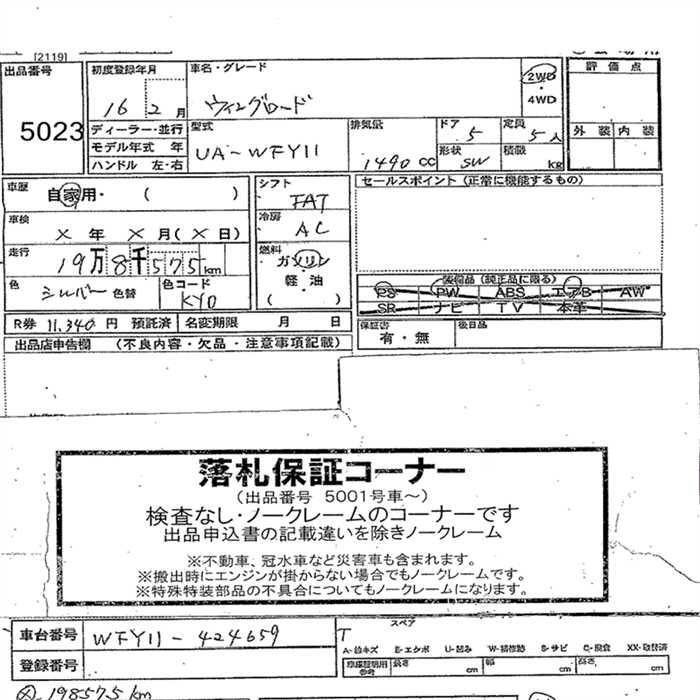 [2119]
出品番号
5023
初度登録年月
16 2月
車名・グレード
ウィングロード
2WD
・
4WD
評価点
外装 内装
ディーラー・並行
モデル年式 年
ハンドル 左・右
型式
UA-WFY11
排気量
1490 CC
ドア
5
形状
SW
定員
5人
積載
kg
車歴
自家用・( )
車検
× 年 × 月(× 日)
走行
19万8千575km
色
シルバー 色替
色コード
KY0
シフト
FAT
冷房
AC
燃料
ガソリン
軽・油
( )
セールスポイント (正常に機能するもの)
装備品 (純正品に限る)
PS PW ABS エアB AW
SR ナビ TV 本革
R券 11,340 円 預託済 名変期限 月 日
保証書
有・無
後日品
出品店申告欄 (不良内容・欠品・注意事項記載)
落札保証コーナー
(出品番号 5001号車～)
検査なし・ノークレームのコーナーです
出品申込書の記載違いを除きノークレーム
※不動車、冠水車など災害車も含まれます。
※搬出時にエンジンが掛からない場合でもノークレームです。
※特殊特装部品の不具合についてもノークレームになります。
車台番号
WFY11-424659
登録番号
スペア
T
A-線キズ E-エクボ U-凹み W-補修跡 S-サビ C-腐食 XX-取替済
車庫証明用
参考
長さ cm 幅 cm 高さ cm
198575km